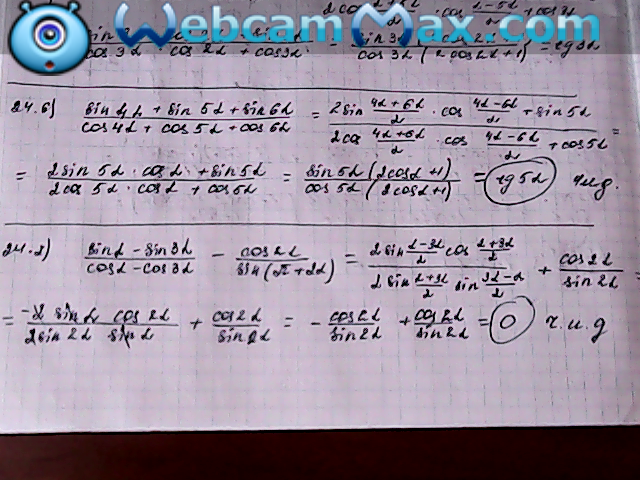 2cos (4α+2α)/2 · cos (4α-2α)/2 + cos3α
WebcamMax.com
cos3α cos2α + cos3α = sin3α / cos3α (2cosα+1) = tg3α
24.б) (sin4α + sin5α + sin6α)/(cos4α + cos5α + cos6α) = (2sin (4α+6α)/2 · cos (4α-6α)/2 + sin5α)/(2cos (4α+6α)/2 · cos (4α-6α)/2 + cos5α) =
= (2sin5α · cosα + sin5α)/(2cos5α · cosα + cos5α) = (sin5α (2cosα+1))/(cos5α (2cosα+1)) = tg5α ч.и.д.
24.г) (sinα - sin3α)/(cosα - cos3α) - cos2α/sin(π+2α) = (2sin (α-3α)/2 cos (α+3α)/2)/(2sin (α+3α)/2 sin (3α-α)/2) + cos2α/sin2α =
= (-2 sinα cos2α)/(2sin2α sinα) + cos2α/sin2α = - cos2α/sin2α + cos2α/sin2α = 0 ч.и.д